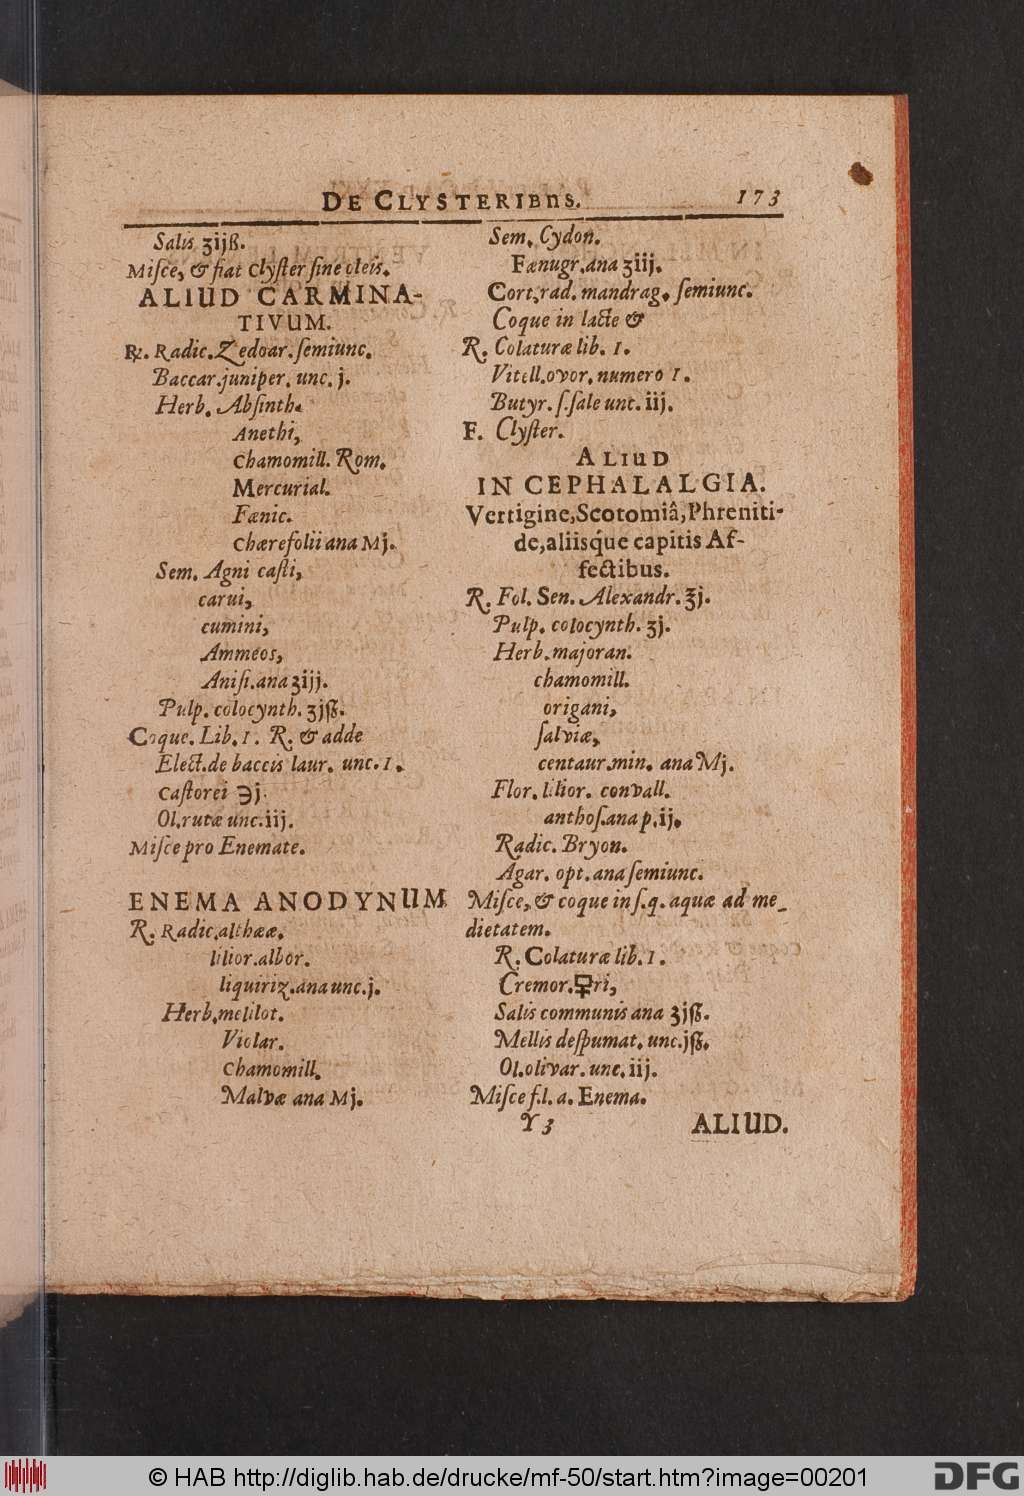 DE CLYSTERIBUS. 173
Salis ʒijß.
Miſce, & fiat Clyſter ſine oleis.
ALIUD CARMINA-
TIVUM.
℞. Radic. Zedoar. ſemiunc.
Baccar. juniper. unc. j.
Herb. Abſinth.
Anethi,
Chamomill. Rom.
Mercurial.
Fænic.
Chærefolii ana Mj.
Sem. Agni caſti,
carui,
cumini,
Ammeos,
Aniſi. ana ʒiij.
Pulp. colocynth. ʒjſß.
Coque. Lib. 1. R. & adde
Elect. de baccis laur. unc. 1.
Caſtorei ℈j.
Ol. rutæ unc. iij.
Miſce pro Enemate.
ENEMA ANODYNUM
R. Radic. althææ.
lilior. albor.
liquiriz. ana unc. j.
Herb. melilot.
Violar.
Chamomill.
Malvæ ana Mj.
Sem. Cydon.
Fænugr. ana ʒiij.
Cort. rad. mandrag. ſemiunc.
Coque in lacte &
R. Colaturæ lib. 1.
Vitell. ovor. numero 1.
Butyr. ſ. ſale unc. iij.
F. Clyſter.
ALIUD
IN CEPHALALGIA.
Vertigine, Scotomiâ, Phreniti-
de, aliisq́ue capitis Af-
fectibus.
R. Fol. Sen. Alexandr. ℥j.
Pulp. colocynth. ʒj.
Herb. majoran.
chamomill.
origani,
ſalviæ,
centaur. min. ana Mj.
Flor. lilior. convall.
anthoſ. ana p. ij.
Radic. Bryon.
Agar. opt. ana ſemiunc.
Miſce, & coque in ſ. q. aquæ ad me-
dietatem.
R. Colaturæ lib. 1.
Cremor. 🜿ri,
Salis communis ana ʒjſß.
Mellis deſpumat. unc. jſß.
Ol. olivar. unc. iij.
Miſce f. l. a. Enema.
Y 3 ALIUD.
© HAB http://diglib.hab.de/drucke/mf-50/start.htm?image=00201
DFG